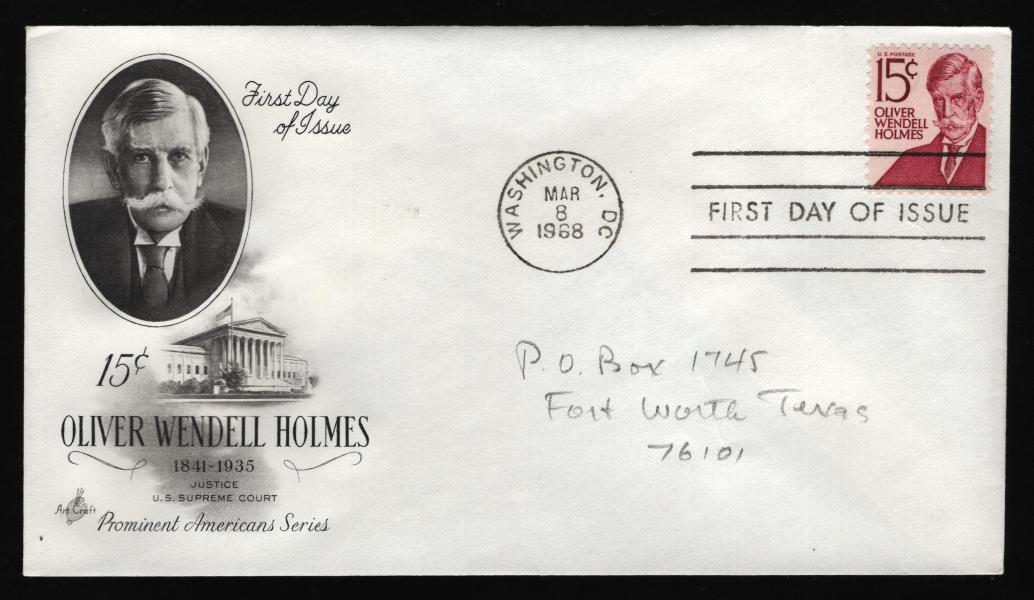 First Day
of Issue
15¢
OLIVER WENDELL HOLMES
1841-1935
JUSTICE
U.S. SUPREME COURT
Art Craft
Prominent Americans Series
WASHINGTON, DC
MAR
8
1968
U.S. POSTAGE
15¢
OLIVER
WENDELL
HOLMES
FIRST DAY OF ISSUE
P.O. Box 1745
Fort Worth Texas
76101